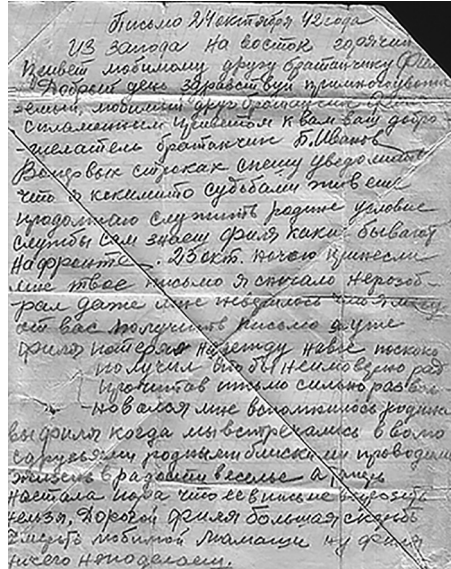 Письмо 24 октября 42 года
Из запода на восток горячий
Привет любимому другу братанчику Филе
Добрый день здравствуй примногоуважа
емый, любимый друг братанчик Филя
с пламенным приветом к вам ваш добро-
желатель братанчик П. Иванов
Вопервых строках спешу уведомить
что я
продолжаю служить родине условие
службы сам знаеш Филя каки бывают
на фронте. 23 окт. ночю принесли
мне твое письмо я сначало неразоб-
рал даже мне неверилось что я могу
от вас получить письмо я уже
Филя потерял надежду на вас поскоко
получил неимоверно рад
прочитав письмо сильно развол-
новался мне вспомнилось родина
вы Филя когда мы встречались
с друзьями родными блискими проводили
жизнь в радости веселье а типерь
настала пора что ее в письме
нельзя. Дорогой Филя большая скорбь
смерть любимой мамаши ну Филя
ничего неподелаеш.